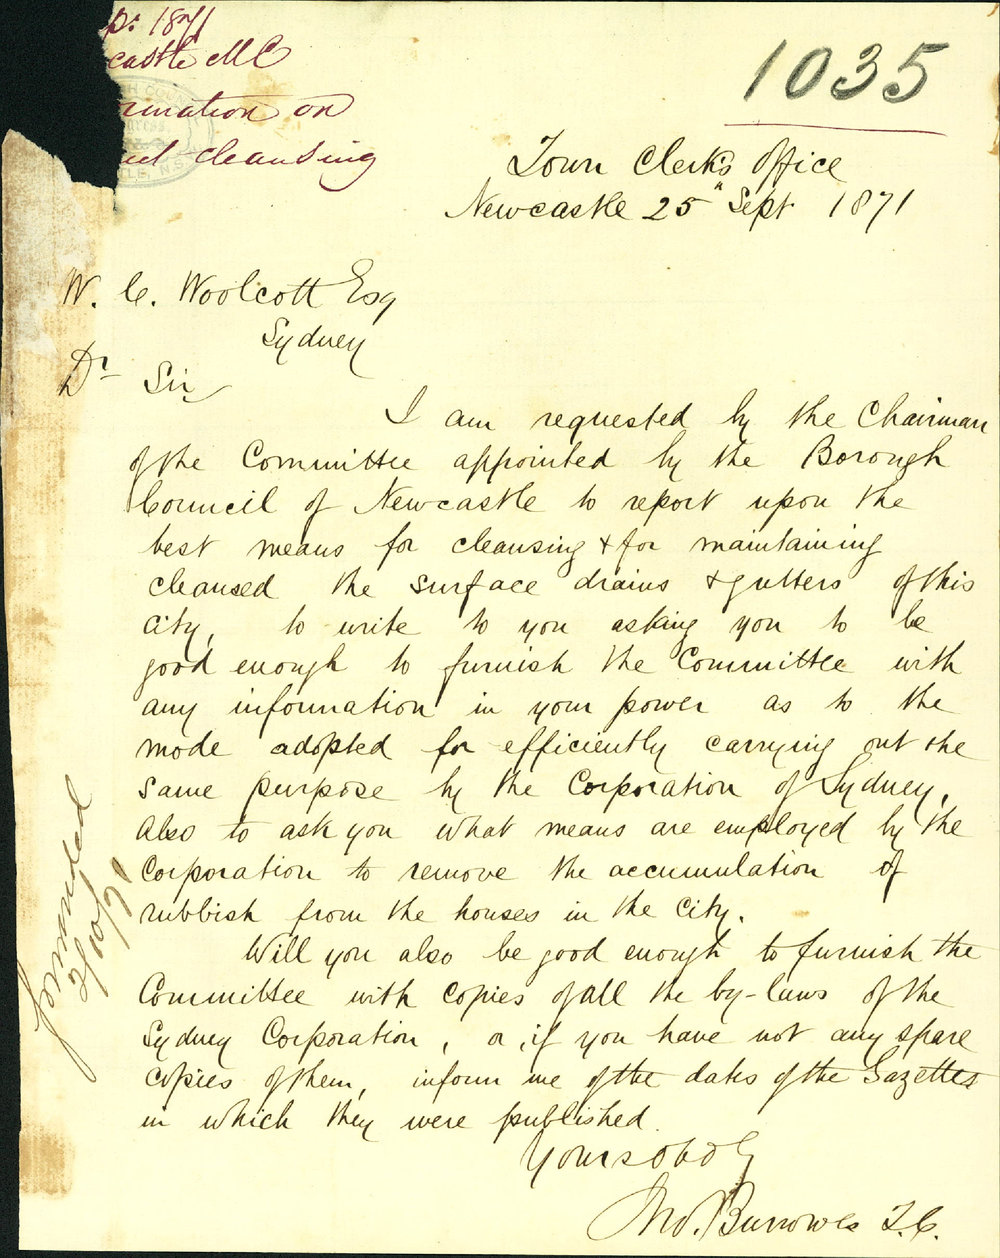 p: 1871
castle MC
rmation on
cleansing
1035
Town Clerks Office
Newcastle 25" Sept 1871
W. C. Woolcott Esq
Sydney
Dr Sir
I am requested by the Chairman
of the Committee appointed by the Borough
Council of Newcastle to report upon the
best means for cleansing & for maintaining
cleansed the surface drains & gutters of this
City, to write to you asking you to be
good enough to furnish the Committee with
any information in your power as to the
mode adopted for efficiently carrying out the
same purpose by the Corporation of Sydney,
also to ask you what means are employed by the
Corporation to remove the accumulation of
rubbish from the houses in the City.
Will you also be good enough to furnish the
Committee with copies of all the by-laws of the
Sydney Corporation, or, if you have not any spare
copies of them, inform me of the dates of the Gazettes
in which they were published.
Yours obdt
Jno. Burrowes T.C.
forwarded
2/10/71